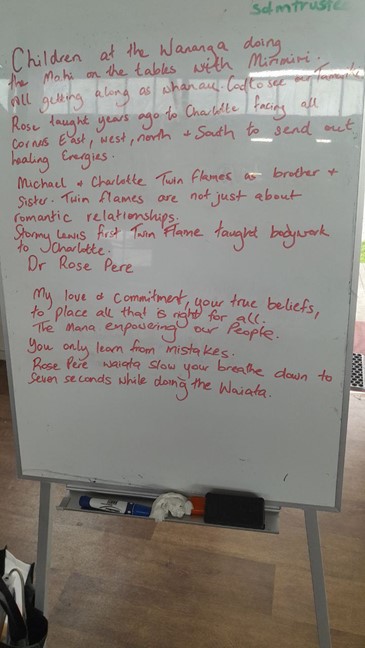 sdmtrustee
Children at the Wananga doing
the Mahi on the tables with Mirimiri.
All getting along as whanau. Good to see our Tamariki
Rose taught years ago to Charlotte facing all
Cornas East, West, north & South to send out
healing Energies.
Michael & Charlotte Twin Flames as brother &
Sister. Twin Flames are not just about
romantic relationships.
Stormy Lewis first Twin Flame taught bodywork
to Charlotte.
Dr Rose Pere
My love & commitment, your true beliefs,
to place all that is right for all.
The Mana empowering our People.
You only learn from mistakes.
Rose Pere waiata slow your breathe down to
Seven seconds while doing the Waiata.